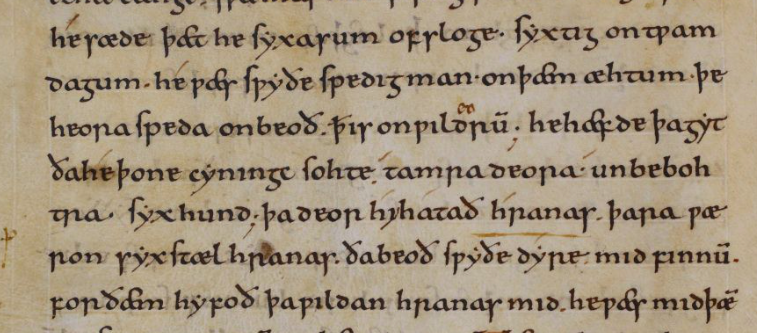 he sæde þæt he syxasum ofsloge. syxtig ontƿam
dagum. he ƿæs sƿyðe spedig man. onþæm æhtum. þe
heora speda onbeoð. þis onƿildeorū; he hæfde þagyt
ðaheþone cyningc sohte. tamra deora. unbeboh
tra. syx hund; þa deor hyhatað hranas. þara ƿæ
ron syx stæl hranas. ðabeoð sƿyðe dyre. mid finnū.
forðæm hy foð þaƿildan hranas mid. he ƿæs midþæ̅